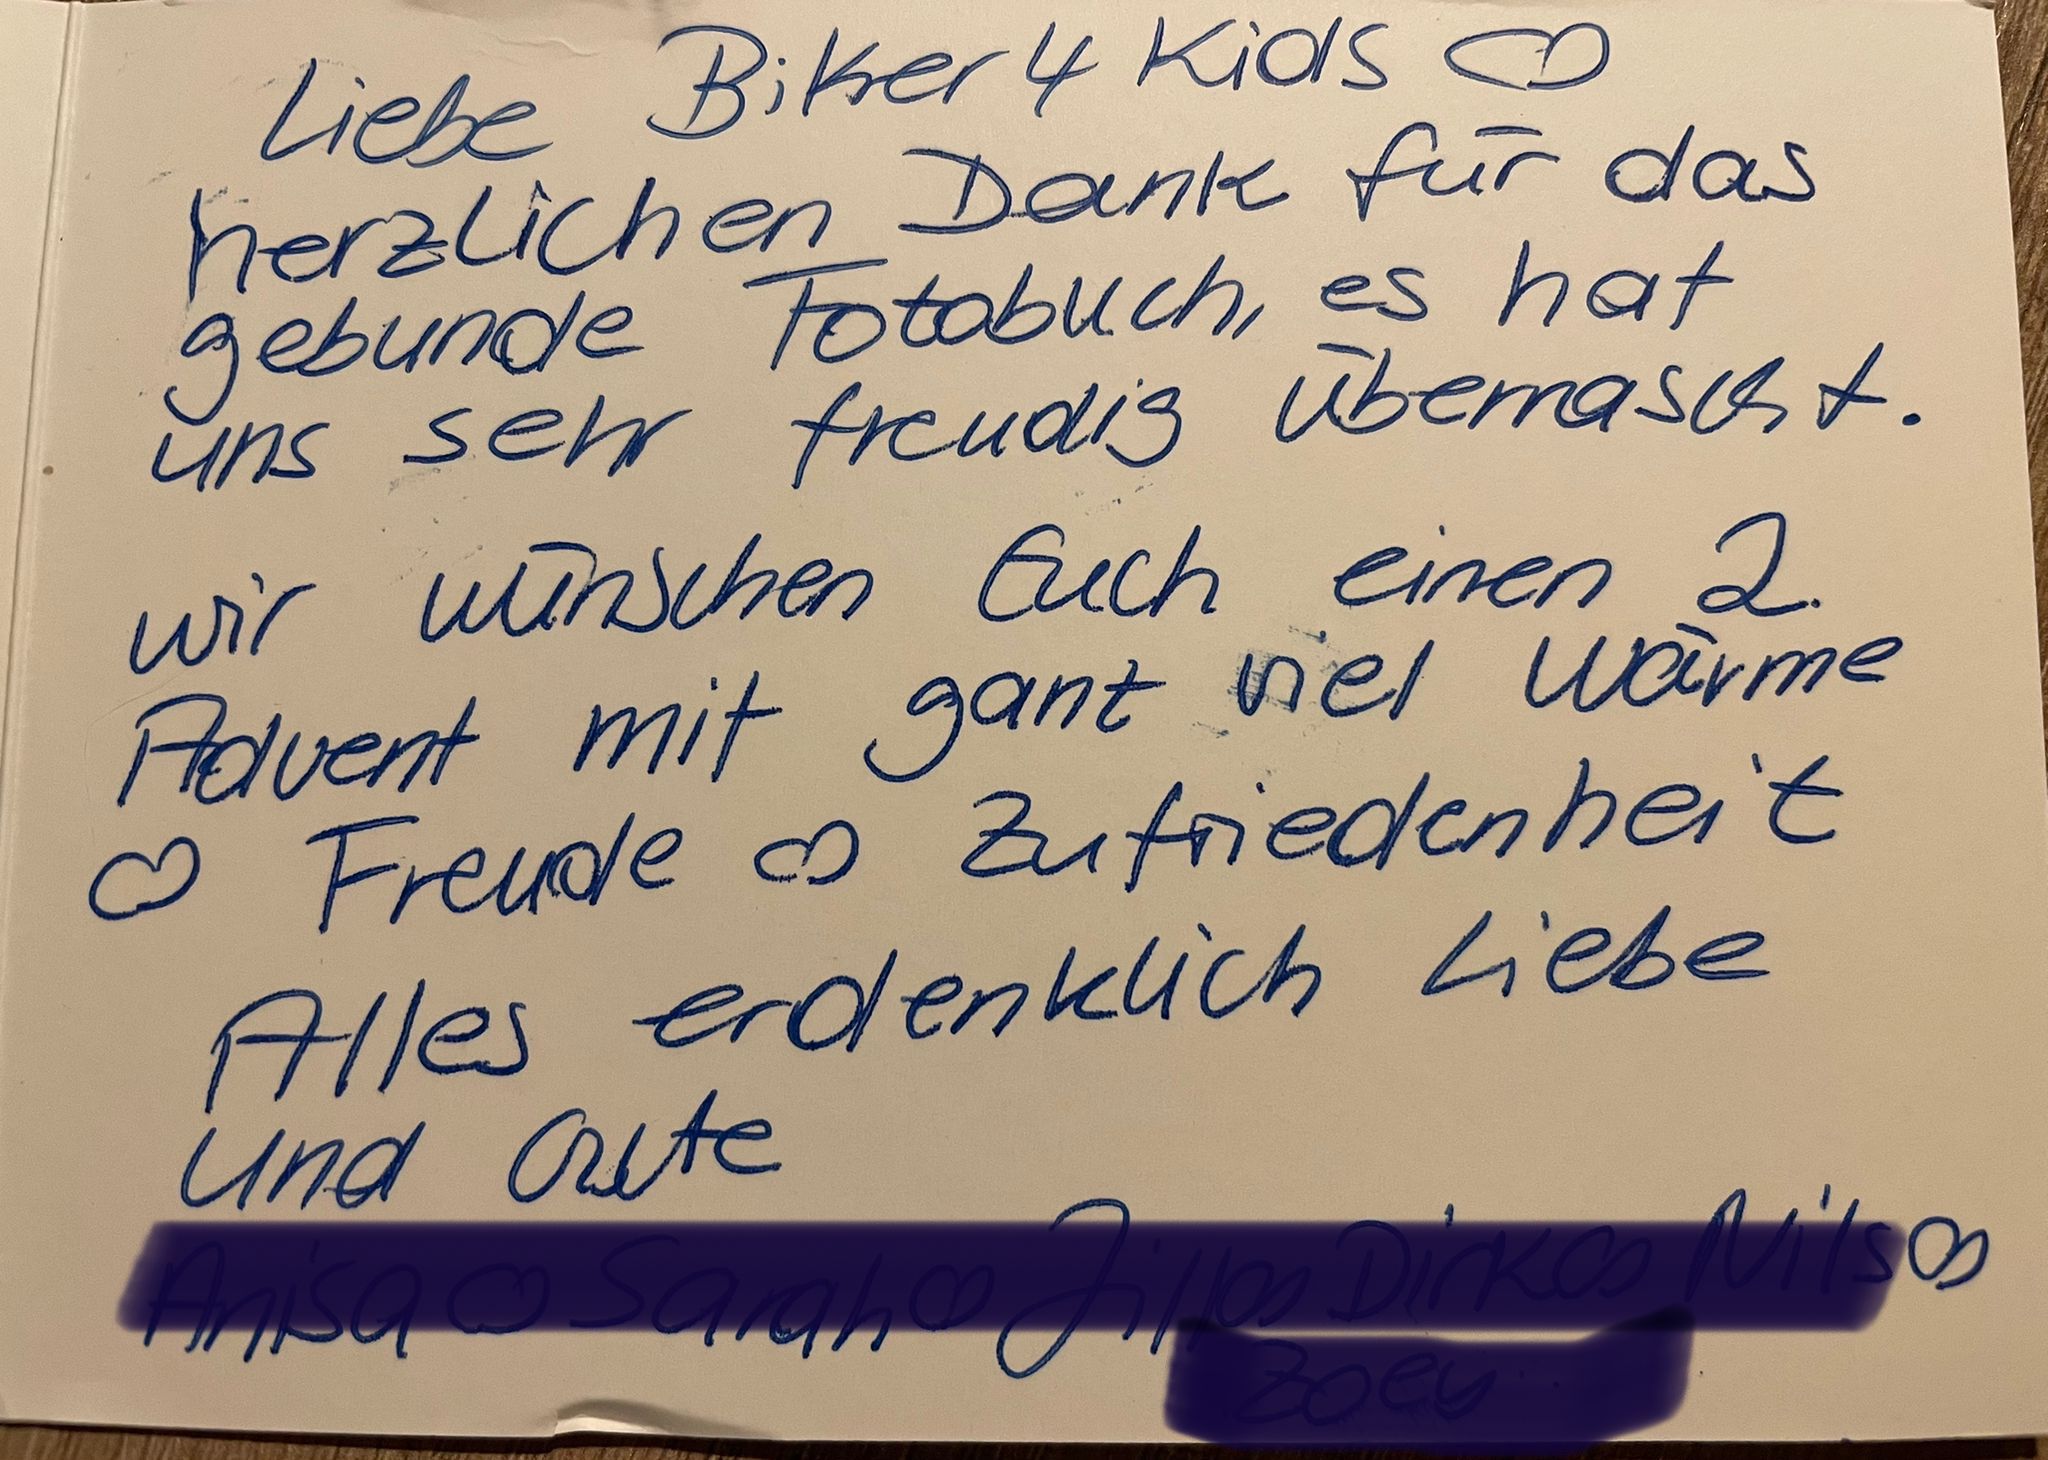 Liebe Biker 4 Kids ♡
herzlichen Dank für das
gebunde Fotobuch, es hat
uns sehr freudig überrascht.
wir wünschen Euch einen 2.
Advent mit ganz viel Wärme
♡ Freude ♡ Zufriedenheit
Alles erdenklich Liebe
und Gute